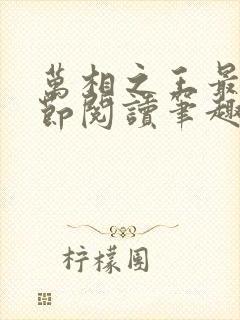 萬相之王最
節閱讀筆趣
柠檬围